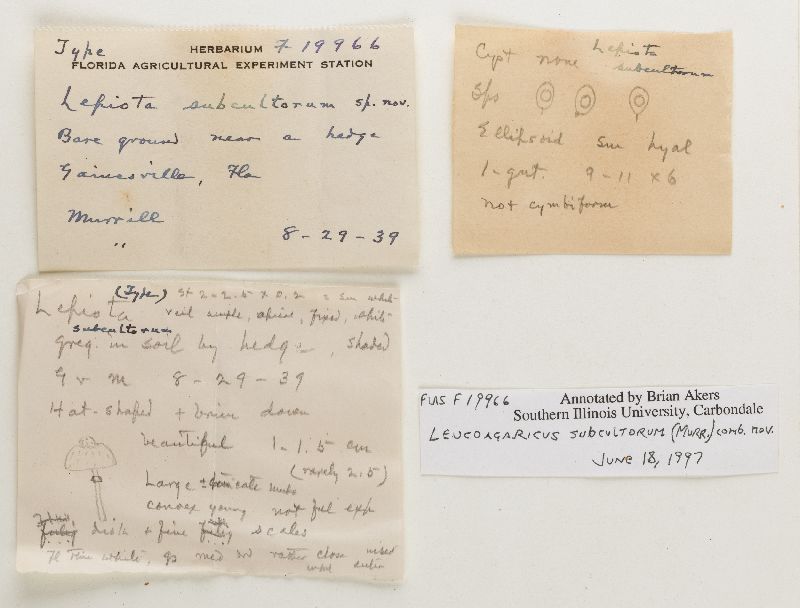 Type HERBARIUM F 19966
FLORIDA AGRICULTURAL EXPERIMENT STATION
Lepiota subcultorum sp. nov.
Bare ground near a hedge
Gainesville, Fla
Murrill
" 8-29-39
Cyst none Lepiota
subcultorum
Sps
Ellipsoid sm hyal
1-gut. 9-11 x 6
not cymbiform
(Type) St 2-2.5 x 0.2 = sm whit
Lepiota veil ample, apical, fixed, white
subcultorum
greg. in soil by hedge, shaded
G v M 8-29-39
Hat-shaped + brim down
beautiful 1-1.5 cm
(rarely 2.5)
Large umbo
convex young not ful exp
disk + fine scales
Fl thin white, gs med rather close
FLAS F19966 Annotated by Brian Akers
Southern Illinois University, Carbondale
LEUCOAGARICUS SUBCULTORUM (MURR.) comb. nov.
JUNE 18, 1997